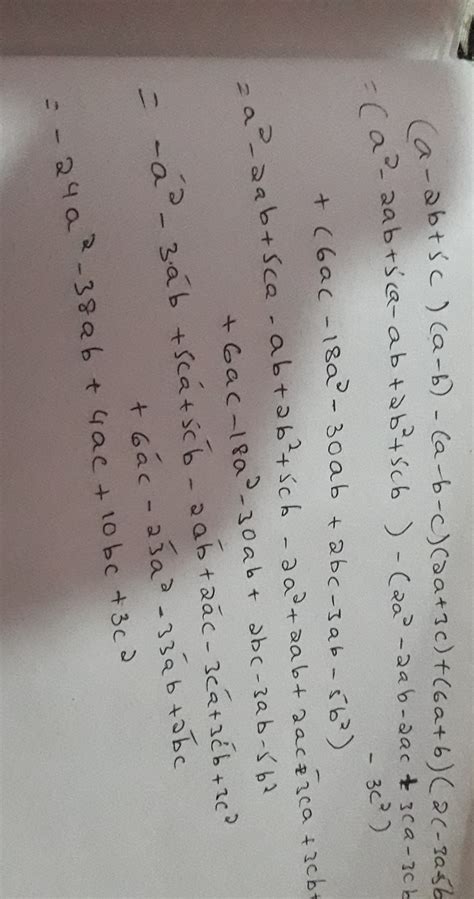 (a-2b+5c)(a-b)-(a-b-c)(2a+3c)+(6a+b)(2c-3a5b
=(a²-2ab+5ca-ab+2b²+5cb)-(2a²-2ab-2ac+3ca-3cb
-3c²)
+(6ac-18a²-30ab+2bc-3ab-5b²)
=a²-2ab+5ca-ab+2b²+5cb-2a²+2ab+2ac-3ca+3cb+
+6ac-18a²-30ab+2bc-3ab-5b²
=-a²-3ab+5ca+5cb-2ab+2ac-3ca+3cb+3c²
+6ac-23a²-33ab+2bc
=-24a²-38ab+4ac+10bc+3c²